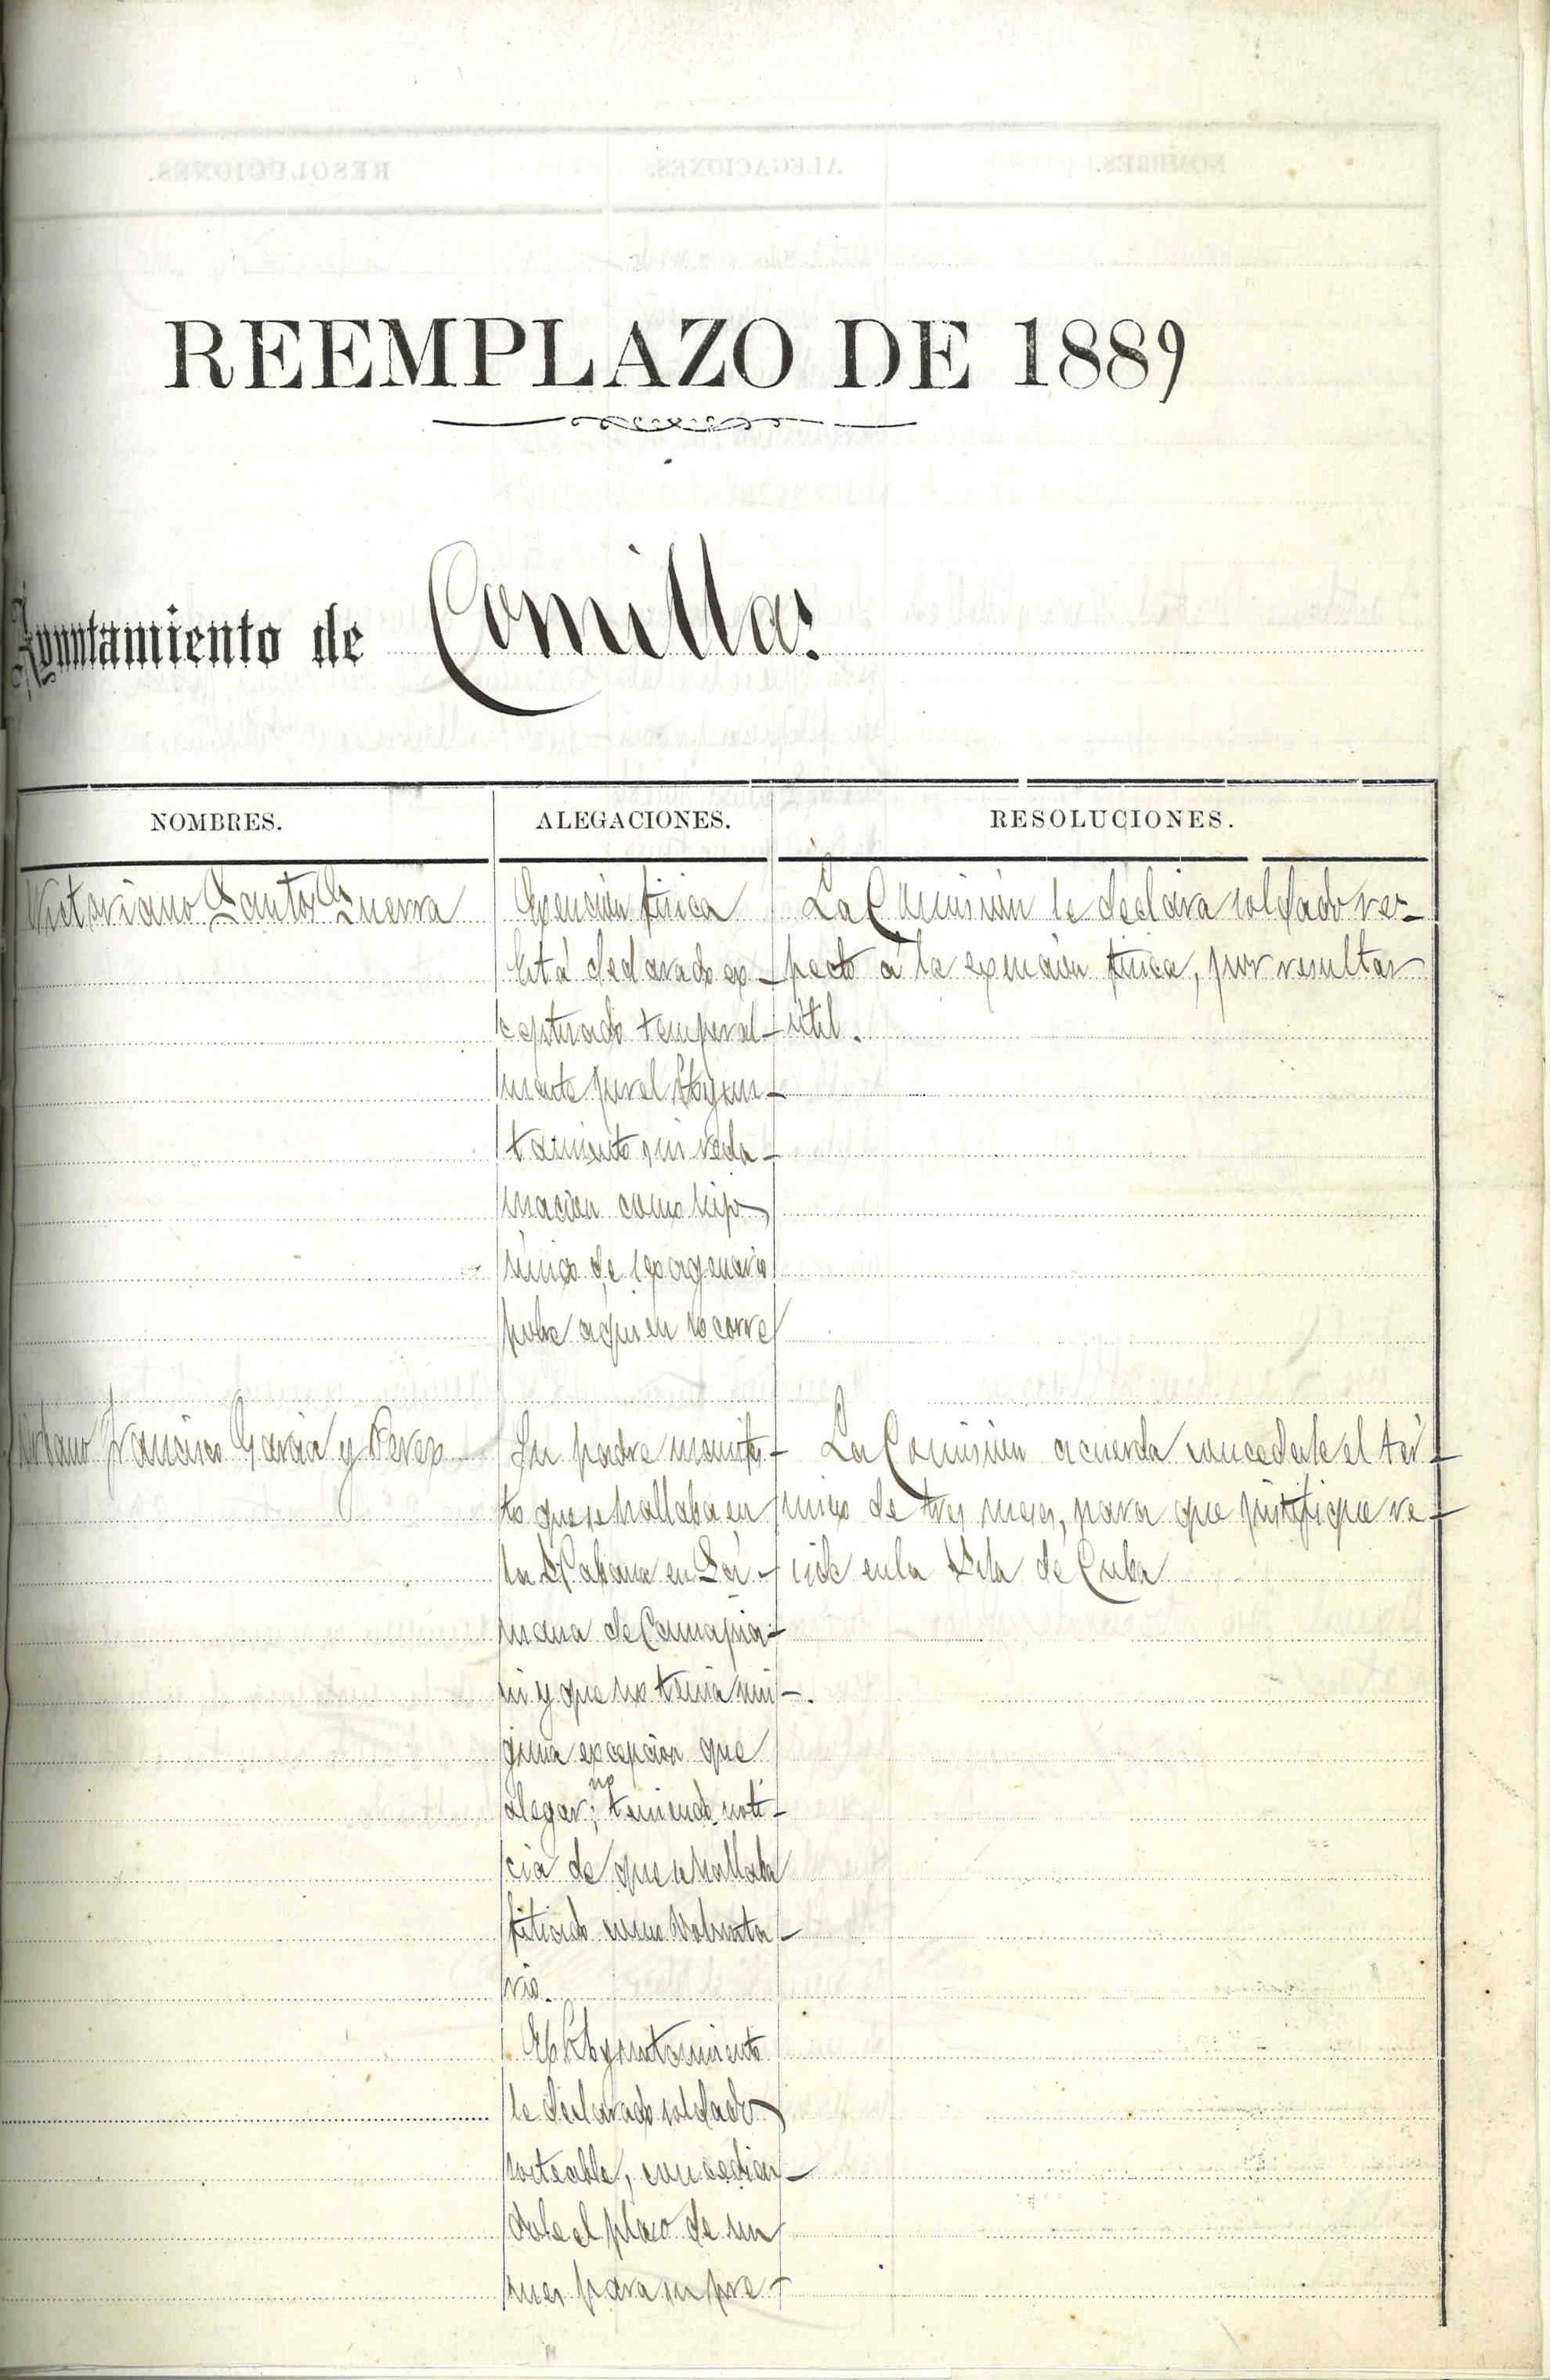 REEMPLAZO DE 1889
Ayuntamiento de Comillas
NOMBRES.
ALEGACIONES.
RESOLUCIONES.
Victoriano Santos Guerra
Exención física
Está declarado ex-
ceptuado temporal-
mente por el Ayun-
tamiento sin recla-
mación como hijo
único de sexagenario
pobre a quien socorre
La Comisión le declara soldado res-
pecto á la exención física, por resultar
útil.
Francisco Garcia y Perez
Su padre manifes-
tó que se hallaba en
la Habana en
de
y que no tenia nin-
guna excepcion que
alegar; no teniendo noti-
cia de que se hallaba
filiado como Volunta-
rio.
El Ayuntamiento
le declarado soldado
sorteable, concedien-
dole el plazo de un
mes para su pre-
La Comisión acuerda concederle el tér-
mino de tres meses, para que justifique re-
side en la Isla de Cuba